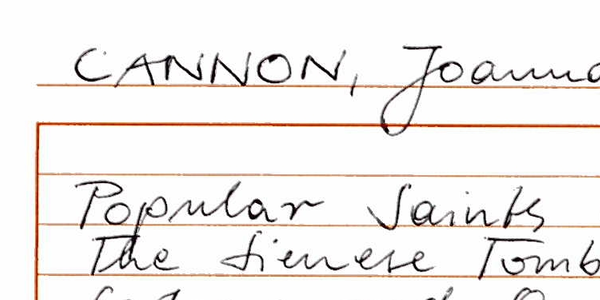 CANNON, Joanna
Popular Saints
The Sienese Tomb